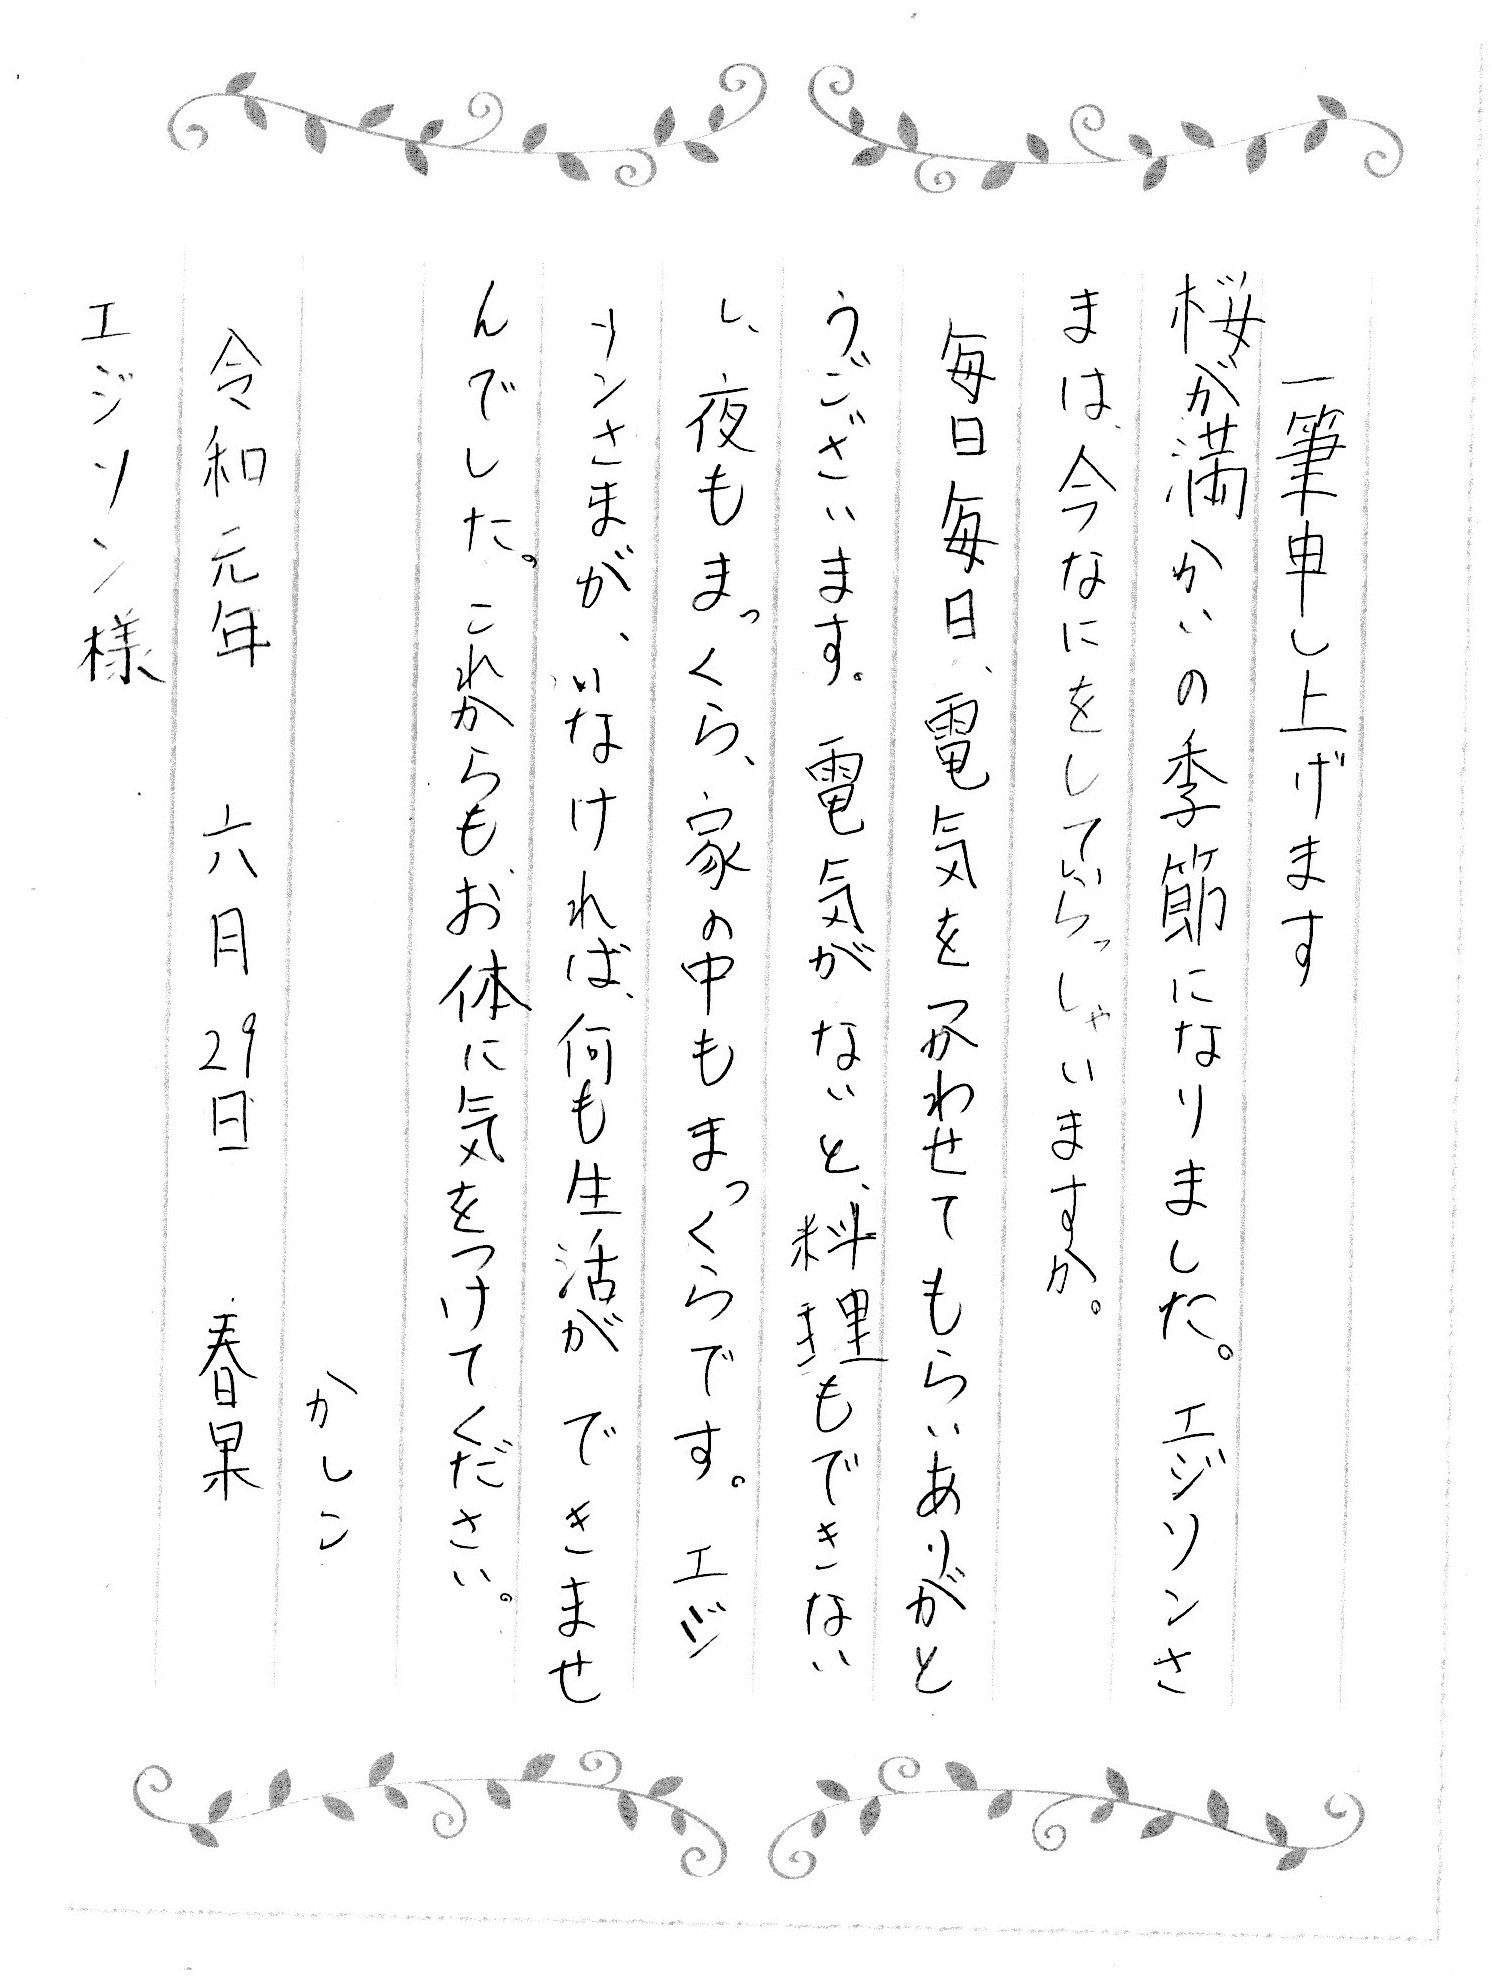 一筆申し上げます
桜が満かいの季節になりました。エジソンさ
まは、今なにをしていらっしゃいますか。
毎日毎日、電気をつかわせてもらいありがと
うございます。電気がないと、料理もできない
し、夜もまっくら、家の中もまっくらです。エジ
ソンさまが、いなければ、何も生活ができませ
んでした。これからもお体に気をつけてください。
かしこ
令和元年 六月29日 春果
エジソン様